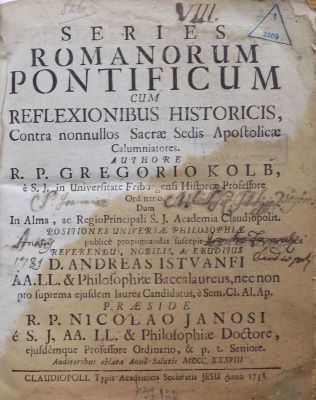 826
VIII.
1
2009
SERIES
ROMANORUM
PONTIFICUM
CUM
REFLEXIONIBUS HISTORICIS,
Contra nonnullos Sacræ Sedis Apostolicæ
Calumniatores.
AUTHORE
R. P. GREGORIO KOLB,
è S. J. in Universitate Friburgensi Historiæ Professore
Ordinario.
Dum
In Alma, ac Regio Principali S. J. Academia Claudiopolit.
POSITIONES UNIVERSÆ PHILOSOPHIÆ
publicè propugnandas suscepit
REVERENDUS, NOBILIS, & ERUDITUS
1781
D. ANDREAS ISTVANFI
AA. LL. & Philosophiæ Baccalaureus, nec non
pro suprema ejusdem laurea Candidatus, è Sem. Cl. Al. Ap.
PRÆSIDE
R. P. NICOLAO JANOSI
è S. J. AA. LL. & Philosophiæ Doctore,
ejusdémque Professore Ordinario, & p. t. Seniore.
Auditoribus oblata Anno Salutis MDCC. XXXVIII
CLAUDIOPOLI. Typis Academicis Societatis JESU Anno 1738.